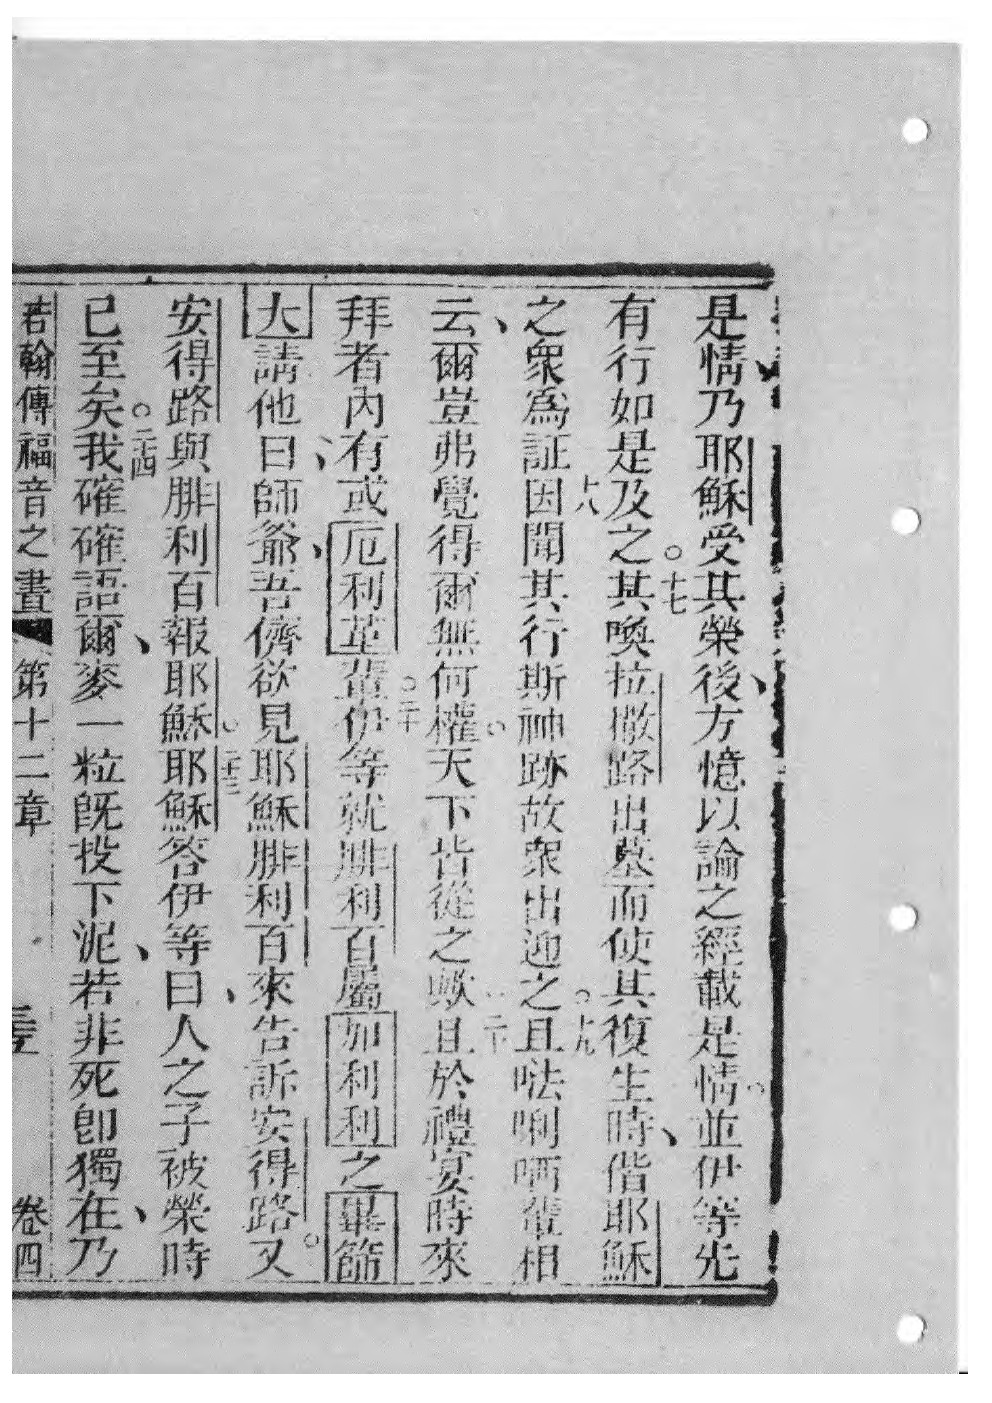 是情乃耶穌受其榮後方憶以論之經載是情。並伊等先
有行如是及之。十七其喚拉撒路出墓而使其復生時、偕耶穌
之衆爲証十八因聞其行斯神跡故衆出迎之。十九且𠵽唎哂輩相
云、爾豈弗覺得爾無何權。天下皆從之歟。二十且於禮宴時來
拜者內有或厄利革輩。二十伊等就腓利百屬加利利之畢篩
大請他曰、師爺、吾儕欲見耶穌腓利百來告訴安得路。又
安得路與腓利百報耶穌。二十三耶穌答伊等曰、人之子被榮時
已至矣。二十四我確確語爾、麥一粒旣投下泥、若非死卽獨在、乃
若翰傳福音之書 第十二章 卷四